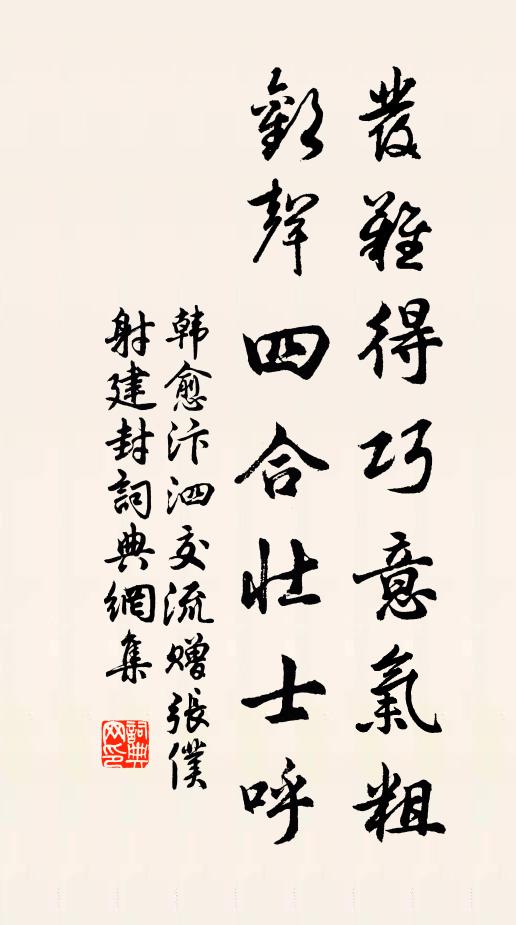 發難得巧意氣粗
歡聲四合壯士呼
韩愈汴泗交流赠張僕
射建封詞典網集
詞典
网印